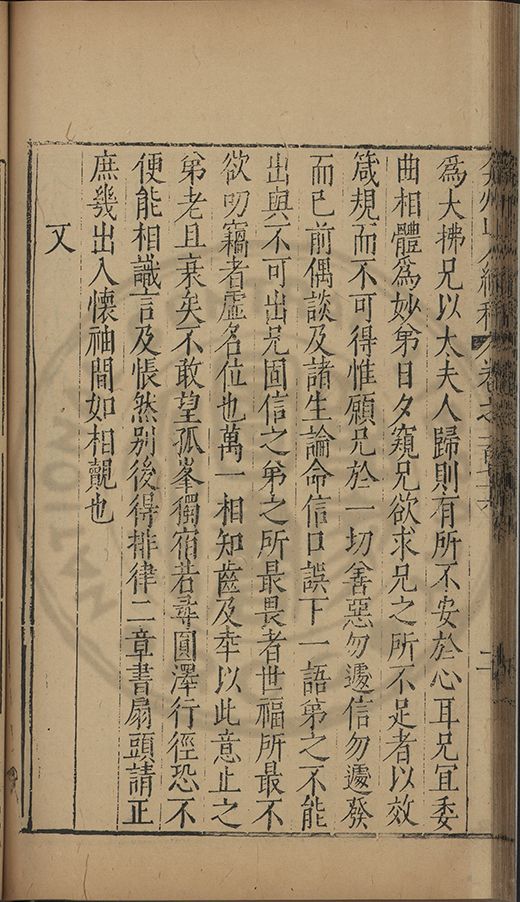 爲大拂兄以太夫人歸則有所不安於心耳兄宜委
曲相體爲妙弟日夕窺兄欲求兄之所不足者以效
箴規而不可得惟願兄於一切善惡勿遽信勿遽發
而已前偶談及諸生論命信口誤下一語第之不能
出與不可出兄固信之弟之所最畏者世福所最不
欲叨竊者虛名位也萬一相知齒及幸以此意止之
弟老且衰矣不敢望孤峯獨宿若尋圓澤行徑恐不
便能相識言及悵然别後得排律二章書扇頭請正
庶幾出入懷袖間如相覿也
又